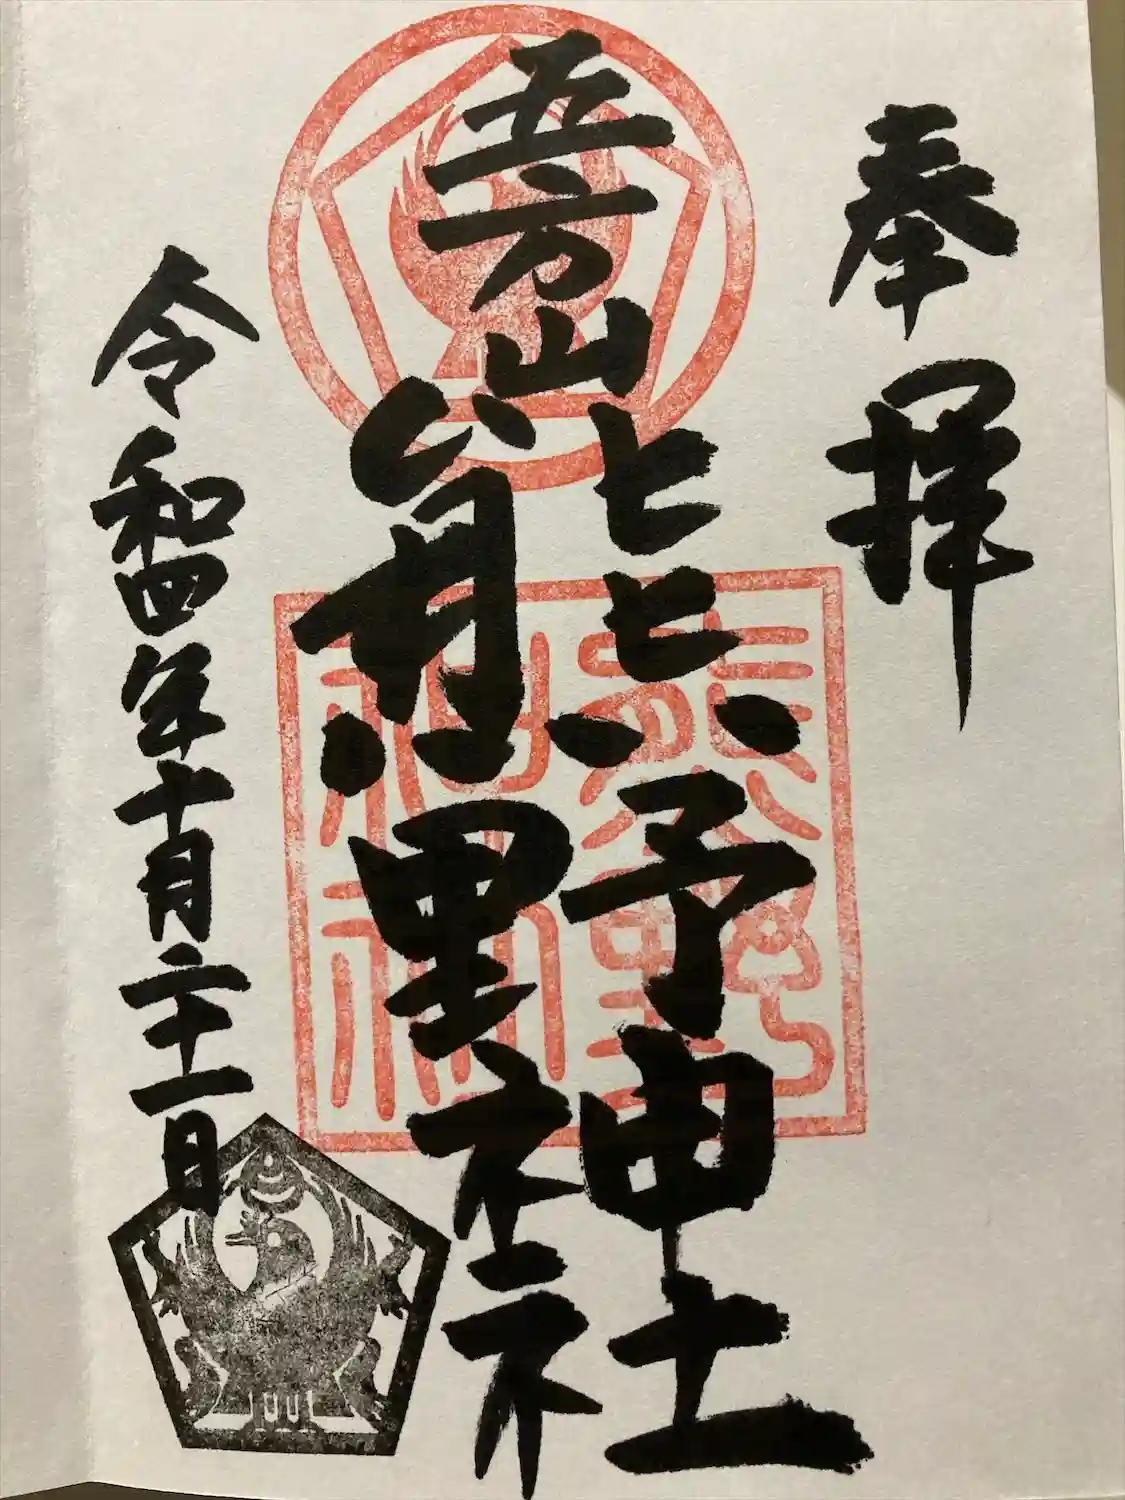 奉拝
五方山
熊野神社
熊野神社
令和四年十月二十一日